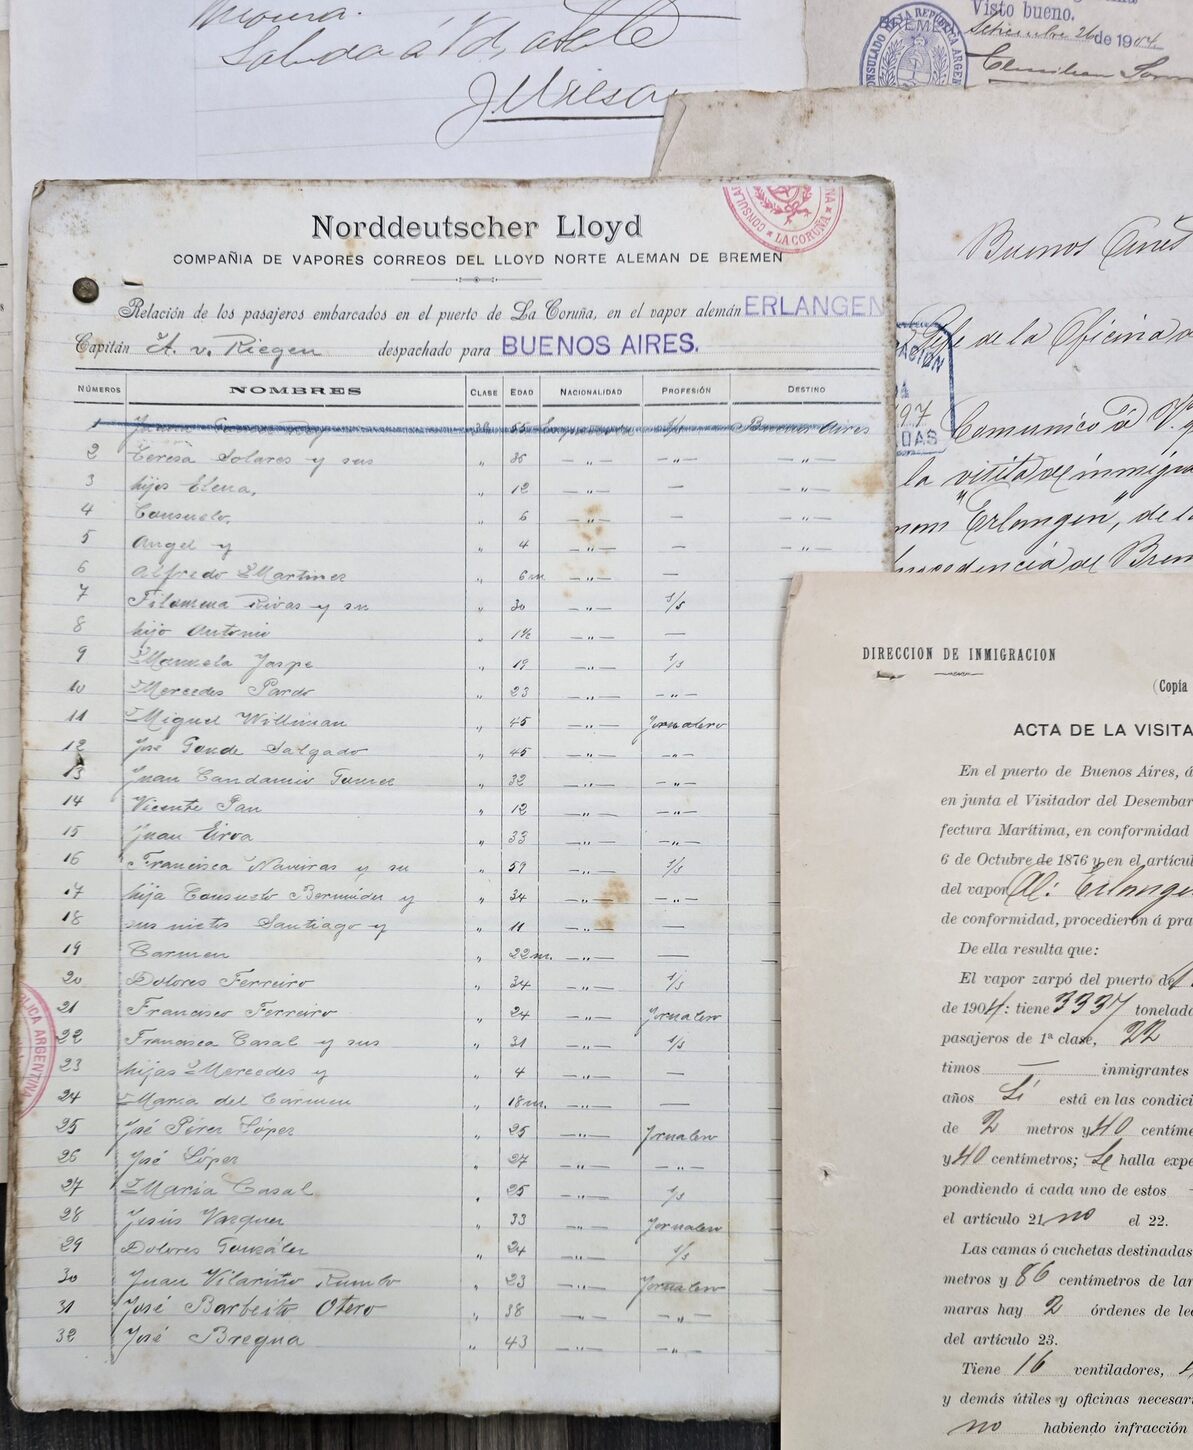 Moura.
Saluda á Vd. atte
J Wilson
Visto bueno.
Setiembre 26 de 1904
CONSULADO DE LA REPUBLICA ARGEN
BREMEN
CONSULA
LA CORUÑA
NA
Norddeutscher Lloyd
COMPAÑIA DE VAPORES CORREOS DEL LLOYD NORTE ALEMAN DE BREMEN
Relación de los pasajeros embarcados en el puerto de La Coruña, en el vapor alemán ERLANGEN
Capitán A. v. Riegen despachado para BUENOS AIRES.
NÚMEROS NOMBRES CLASE EDAD NACIONALIDAD PROFESIÓN DESTINO
1 3ª 55 Española s/s Buenos Aires
2 Teresa Solares y sus „ 36 — „ — — „ — — „ —
3 hijos Elena, „ 12 — „ — — — „ —
4 Consuelo, „ 6 — „ — — — „ —
5 Angel y „ 4 — „ — — — „ —
6 Alfredo Martinez „ 6 m. — „ — —
7 Filomena Rivas y su „ 30 — „ — s/s
8 hijo Antonio „ 1½ — „ — —
9 Manuela Jaspe „ 19 — „ — s/s
10 Mercedes Pardo „ 23 — „ — — „ —
11 Miguel Williman „ 45 — „ — Jornalero
12 José Conde Salgado „ 45 — „ — — „ —
13 Juan Candamio Gomez „ 32 — „ — — „ —
14 Vicente Pan „ 12 — „ — — „ —
15 Juan Eiroa „ 33 — „ — — „ —
16 Francisca Naveiras y su „ 59 — „ — s/s
17 hija Consuelo Bermúdez y „ 34 — „ — — „ —
18 sus nietos Santiago y „ 11 — „ — —
19 Carmen „ 22 m. — „ — —
20 Dolores Ferreiro „ 34 — „ — s/s
21 Francisco Ferreiro „ 24 — „ — Jornalero
22 Francisca Casal y sus „ 31 — „ — s/s
23 hijas Mercedes y „ 4 — „ — —
24 Maria del Carmen „ 18 m. — „ — —
25 José Pérez López „ 25 — „ — Jornalero
26 José López „ 27 — „ — — „ —
27 Maria Casal „ 25 — „ — s/s
28 Jesús Vazquez „ 33 — „ — Jornalero
29 Dolores González „ 24 — „ — s/s
30 Juan Vilariño Rumbo „ 23 — „ — Jornalero
31 José Barbeito Otero „ 38 — „ — — „ —
32 José Bregua „ 43 — „ — — „ —
LICA ARGENTINA
Buenos Aires
Gefe de la Oficina d
ACIÓN
197
DAS
Comunico á V. q
la visita de inmigra
"Erlangen", de la
procedencia de Brem
DIRECCION DE INMIGRACION
(Copia
ACTA DE LA VISITA
En el puerto de Buenos Aires, á
en junta el Visitador del Desembar
fectura Marítima, en conformidad
6 de Octubre de 1876 y en el artícu
del vapor Al: Erlange
de conformidad, procedieron á pra
De ella resulta que:
El vapor zarpó del puerto de
de 1904: tiene 3337 tonelada
pasajeros de 1ª clase, 22
timos — inmigrantes
años Sí está en las condici
de 2 metros y 40 centíme
y 40 centímetros; Se halla expe
pondiendo á cada uno de estos
el artículo 21 no el 22.
Las camas ó cuchetas destinadas
metros y 86 centímetros de lar
maras hay 2 órdenes de le
del artículo 23.
Tiene 16 ventiladores,
y demás útiles y oficinas necesar
no habiendo infracción